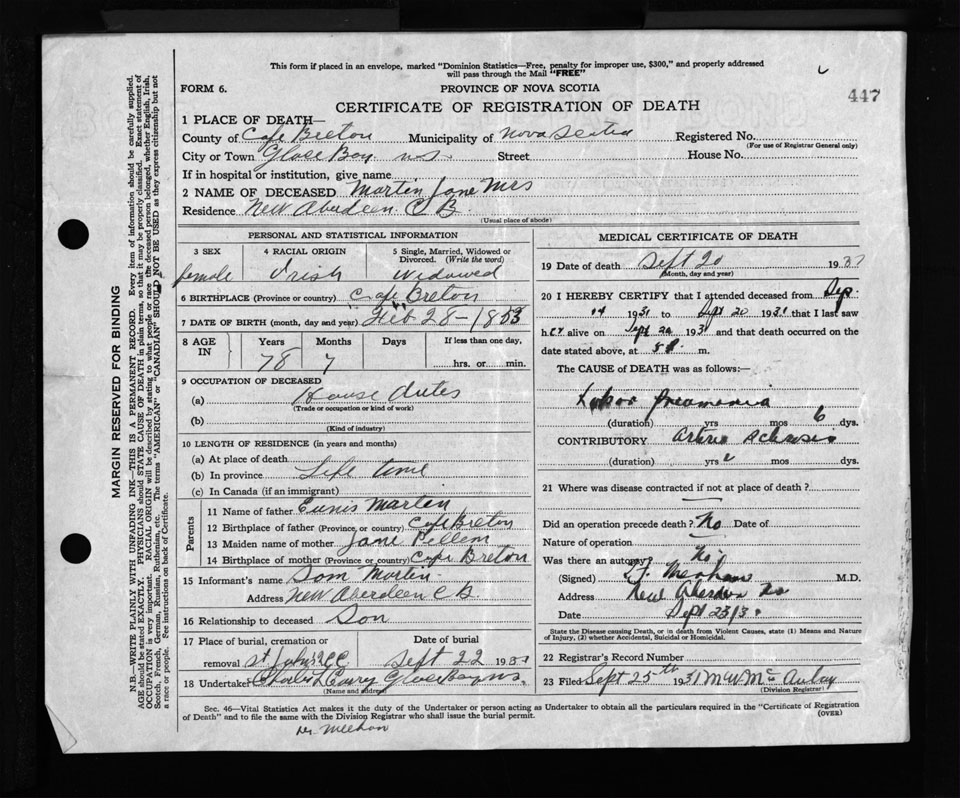 This form if placed in an envelope, marked "Dominion Statistics—Free, penalty for improper use, $300," and properly addressed
will pass through the Mail "FREE"
FORM 6.
PROVINCE OF NOVA SCOTIA
447
CERTIFICATE OF REGISTRATION OF DEATH
1 PLACE OF DEATH—
County of Cape Breton Municipality of Nova Scotia Registered No.
(For use of Registrar General only)
City or Town Glace Bay N.S. Street House No.
If in hospital or institution, give name
2 NAME OF DECEASED Martin Jane Mrs
Residence New Aberdeen C B.
(Usual place of abode)
PERSONAL AND STATISTICAL INFORMATION
3 SEX 4 RACIAL ORIGIN 5 Single, Married, Widowed or Divorced. (Write the word)
female Irish Widowed
6 BIRTHPLACE (Province or country) Cape Breton
7 DATE OF BIRTH (month, day and year) Feb 28-1853
8 AGE IN Years Months Days If less than one day,
78 7 hrs. or min.
9 OCCUPATION OF DECEASED
(a) House Duties
(Trade or occupation or kind of work)
(b)
(Kind of industry)
10 LENGTH OF RESIDENCE (in years and months)
(a) At place of death
(b) In province Life time
(c) In Canada (if an immigrant)
Parents
11 Name of father Martin
12 Birthplace of father (Province, or country) Cape Breton
13 Maiden name of mother Jane
14 Birthplace of mother (Province or country) Cape Breton
15 Informant's name Martin
Address New Aberdeen C B.
16 Relationship to deceased Son
17 Place of burial, cremation or removal St Johns Date of burial Sept 22 1931
18 Undertaker Charles L Curry Glace Bay N.S
(Name and address)
MEDICAL CERTIFICATE OF DEATH
19 Date of death Sept 20 193
(Month, day and year)
20 I HEREBY CERTIFY that I attended deceased from Sep.
14 1931 to Sept 20 1931 that I last saw
h er alive on Sept 20 1931 and that death occurred on the
date stated above, at 8 m.
The CAUSE of DEATH was as follows:—
Lobar pneumonia
(duration) yrs mos 6 dys.
CONTRIBUTORY Arterio sclerosis
(duration) yrs mos dys.
21 Where was disease contracted if not at place of death?
Did an operation precede death? No Date of
Nature of operation
Was there an autopsy No
(Signed) M.D.
Address New Aberdeen NS
Date Sept 23/31
State the Disease causing Death, or in death from Violent Causes, state (1) Means and Nature
of Injury, (2) whether Accidental, Suicidal or Homicidal.
22 Registrar's Record Number
23 Filed Sept 25th 1931 M W McAulay
(Division Registrar)
Sec. 46—Vital Statistics Act makes it the duty of the Undertaker or person acting as Undertaker to obtain all the particulars required in the "Certificate of Registration
of Death" and to file the same with the Division Registrar who shall issue the burial permit.
(OVER)
Dr. Meehan
MARGIN RESERVED FOR BINDING
N.B.—WRITE PLAINLY WITH UNFADING INK—THIS IS A PERMANENT RECORD. Every item of information should be carefully supplied.
AGE should be stated EXACTLY. PHYSICIANS should STATE CAUSE OF DEATH in plain terms, so that it may be properly classified. Exact statement of
OCCUPATION is very important. RACIAL ORIGIN will be described by stating to what people or race the deceased person belonged, whether English, Irish,
Scotch, French, German, Russian, Ruthenian, etc. The terms "AMERICAN" or "CANADIAN" SHOULD NOT BE USED as they express citizenship but not
a race or people. See instructions on back of Certificate.